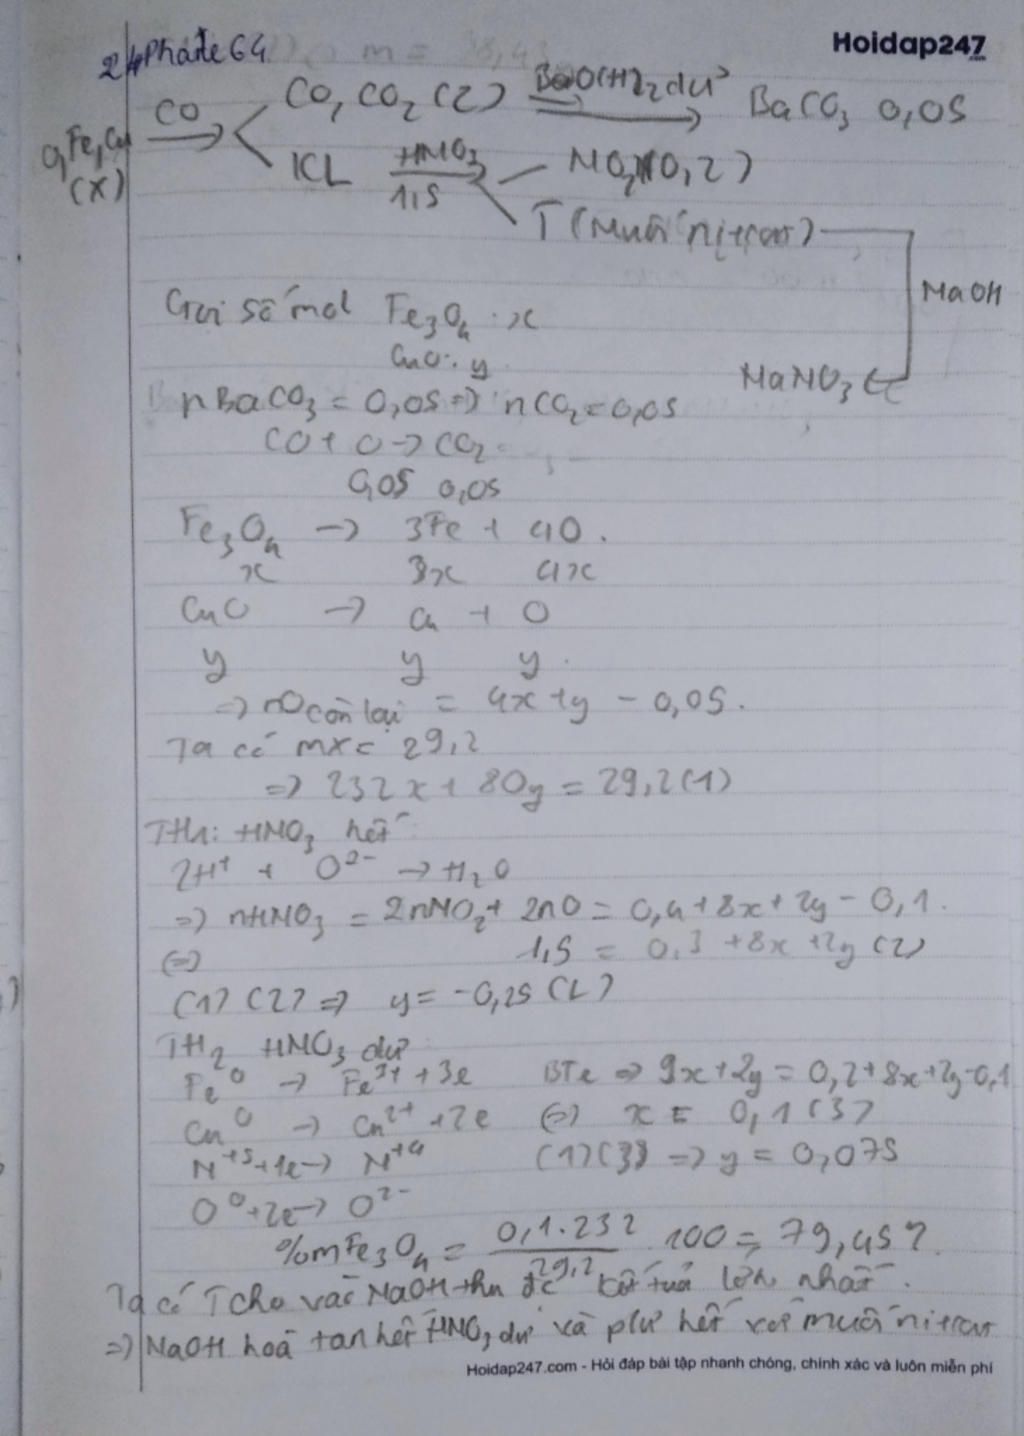 Hoidap247
CO CO, CO2 (Z) Ba(OH)2 dư BaCO3 0,05
O, Fe, Cu
(X) KL HNO3 NO2 (0,2)
1,5
T (Muối nitrat)
NaOH
Gọi số mol Fe3O4 : x
CuO : y
NaNO3
nBaCO3 = 0,05 => nCO2 = 0,05
CO + O -> CO2
0,05 0,05
Fe3O4 -> 3Fe + 4O.
x 3x 4x
CuO -> Cu + O
y y y.
=> nO còn lại = 4x + y - 0,05.
Ta có mX = 29,2
=> 232x + 80y = 29,2 (1)
TH1: HNO3 hết
2H+ + O2- -> H2O
=> nHNO3 = 2nNO2 + 2nO = 0,4 + 8x + 2y - 0,1.
(=) 1,5 = 0,3 + 8x + 2y (2)
(1) (2) => y = -0,25 (L)
TH2 HNO3 dư
Fe0 -> Fe3+ + 3e BTe => 9x + 2y = 0,2 + 8x + 2y - 0,1
Cu0 -> Cu2+ + 2e (=) x = 0,1 (3)
N+5 + 1e -> N+4 (1)(3) => y = 0,075
O0 + 2e -> O2-
%mFe3O4 = 0,1.232 / 29,2 . 100 = 79,45%.
Ta có T cho vào NaOH thu đc kết tủa lớn nhất.
=> NaOH hoà tan hết HNO3 dư và pứ hết với muối nitrat
Hoidap247.com - Hỏi đáp bài tập nhanh chóng, chính xác và luôn miễn phí